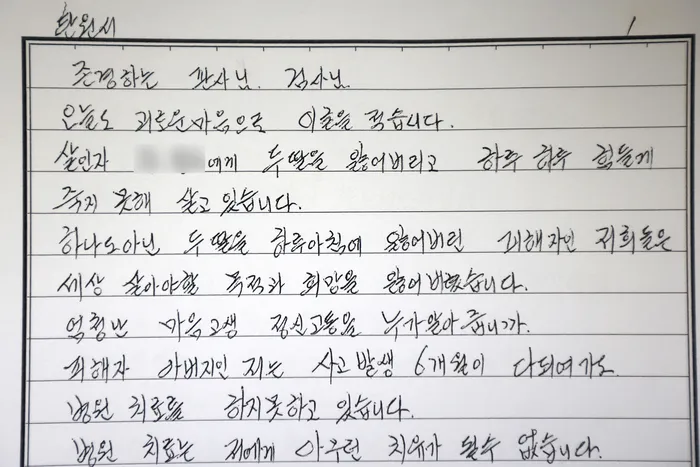 탄원서 1
존경하는 판사님. 검사님.
오늘도 괴로운마음으로 이글을 적습니다.
살인자 에게 두딸을 잃어버리고 하루 하루 힘들게
죽지 못해 살고 있습니다.
하나도아닌 두딸을 하루아침에 잃어버린 피해자인 저희들은
세상 살아야할 목적과 희망을 잃어버렸습니다.
엄청난 마음고생 정신고통을 누가알아줍니까.
피해자 아버지인 저는 사고발생 6개월이 다되여가도
병원 치료를 하지못하고 있습니다.
병원 치료는 저에게 아무런 치유가 될수 없습니다.